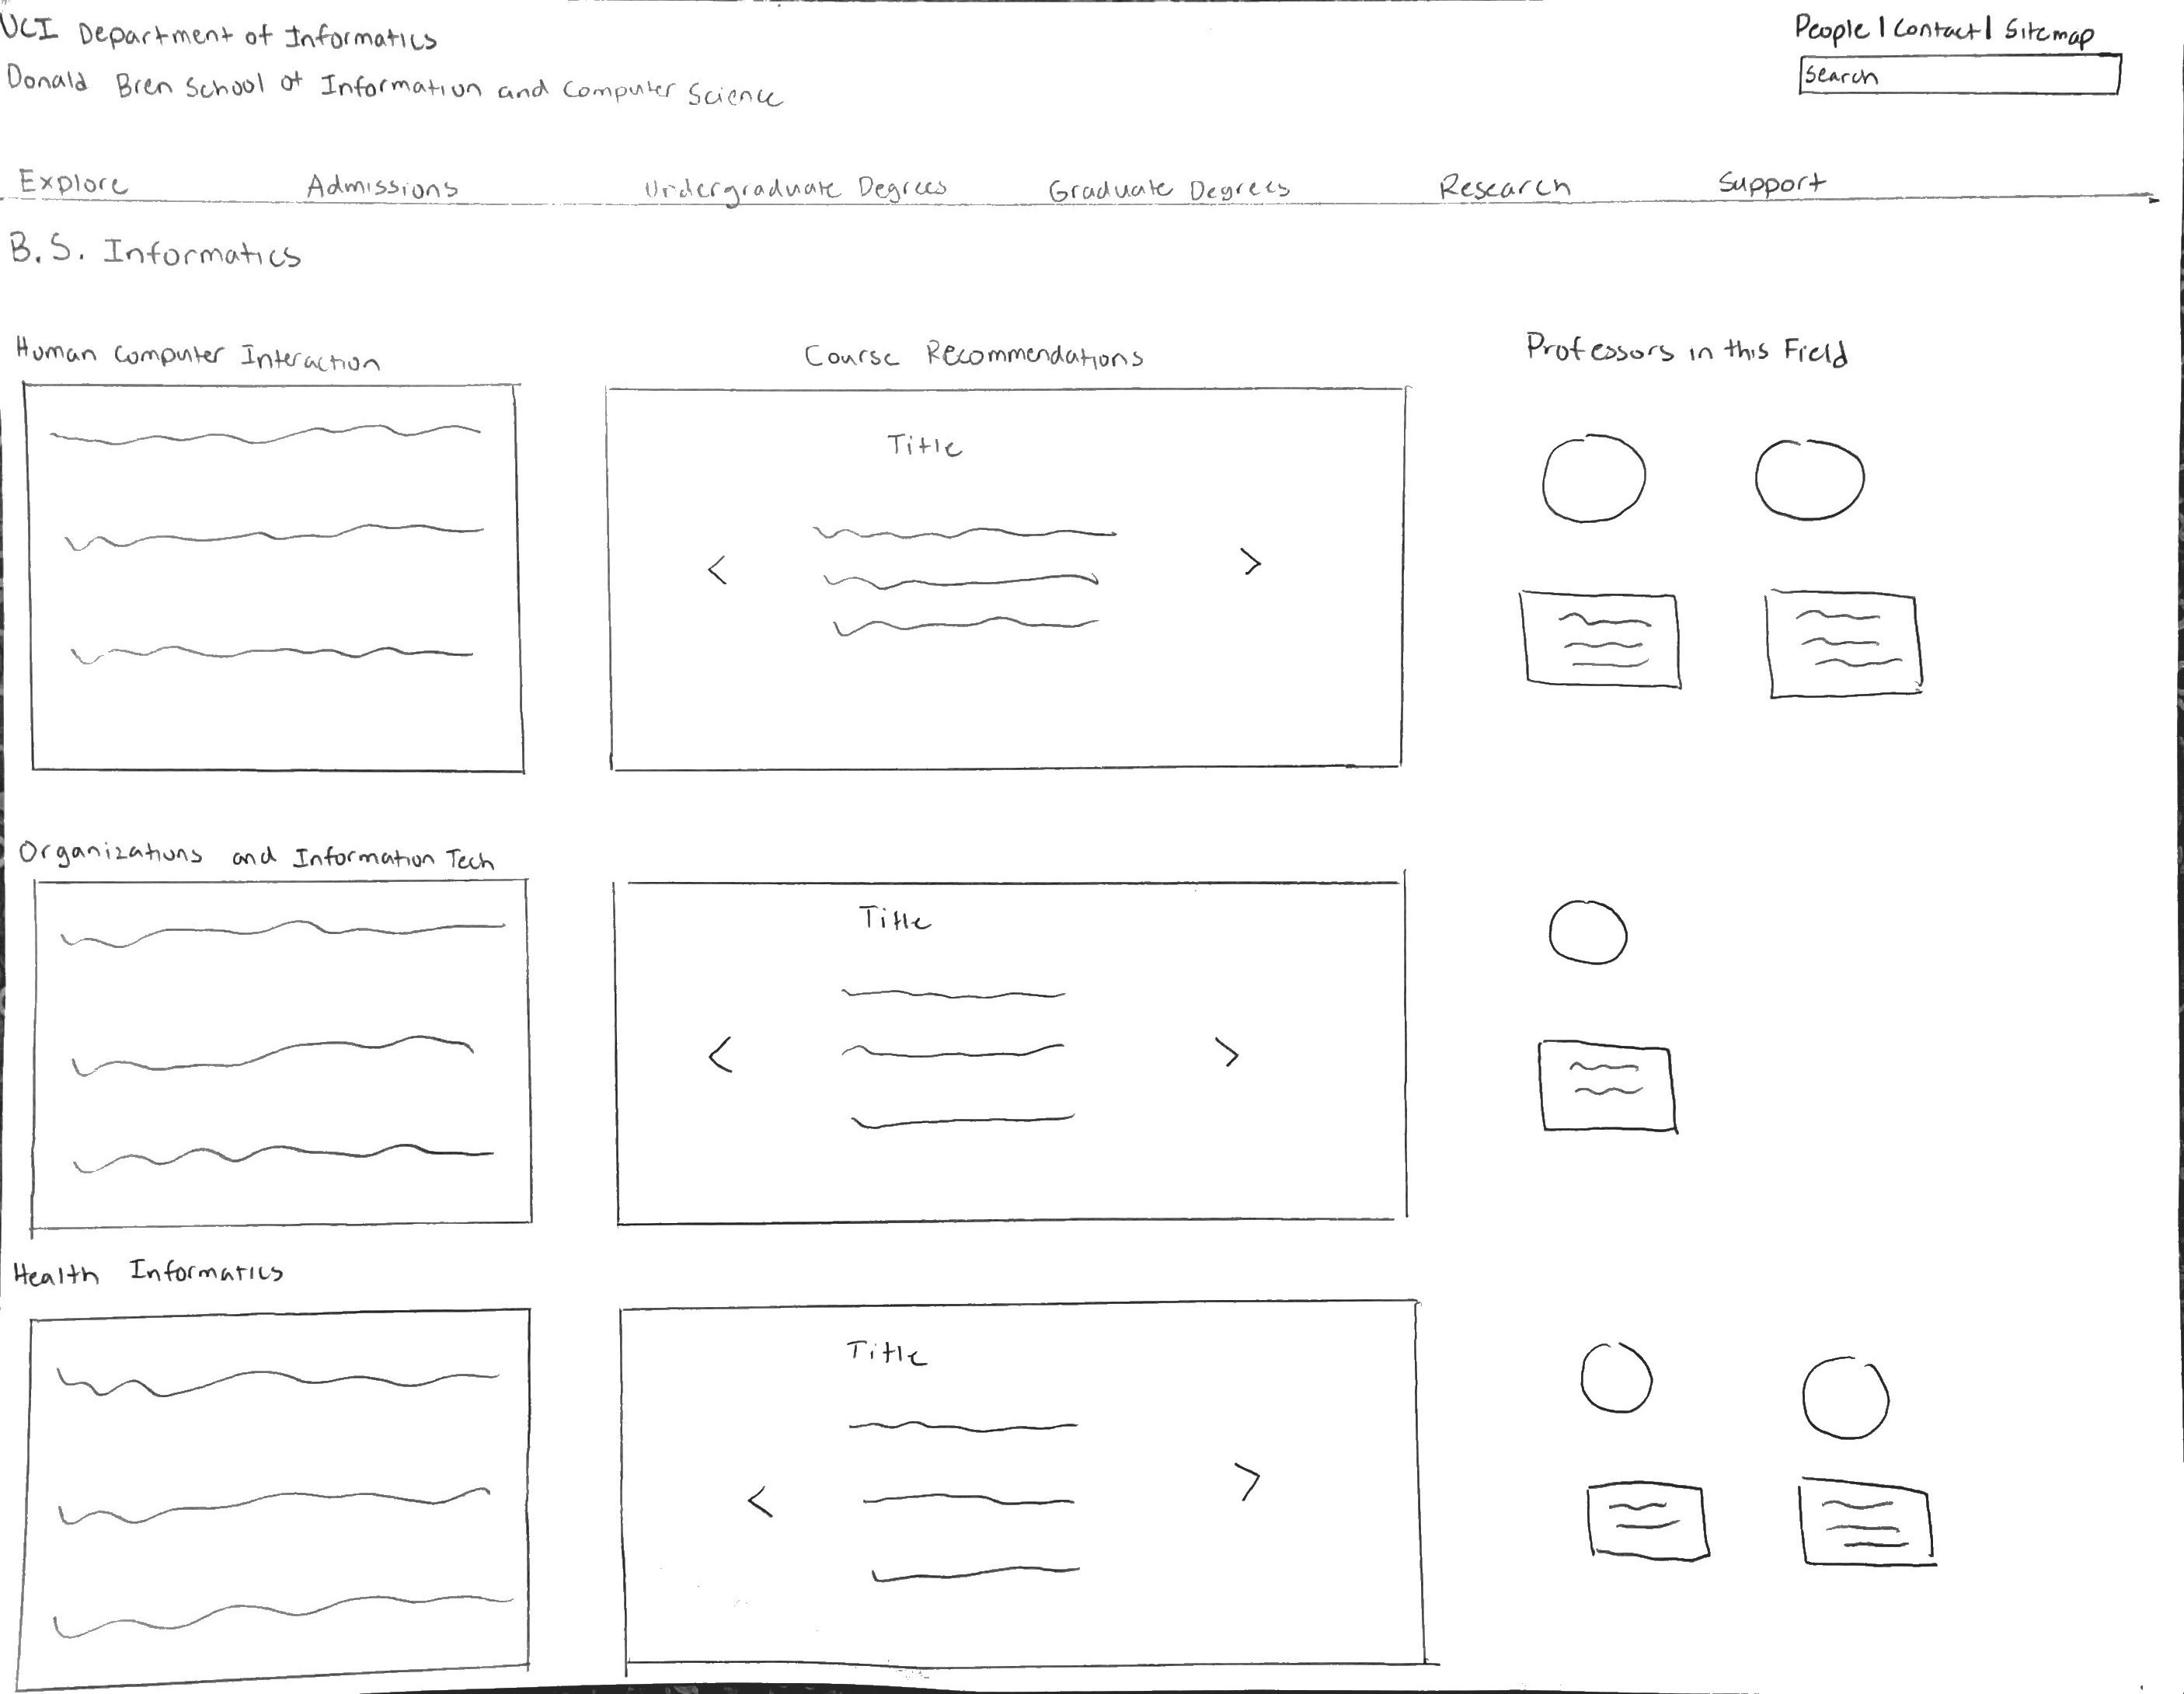 UCI Department of Informatics
Donald Bren School of Information and Computer Science
People | Contact | Sitemap
Search
Explore Admissions Undergraduate Degrees Graduate Degrees Research Support
B.S. Informatics
Human Computer Interaction
Course Recommendations
Professors in this Field
Title
<
>
Organizations and Information Tech
Title
<
>
Health Informatics
Title
<
>